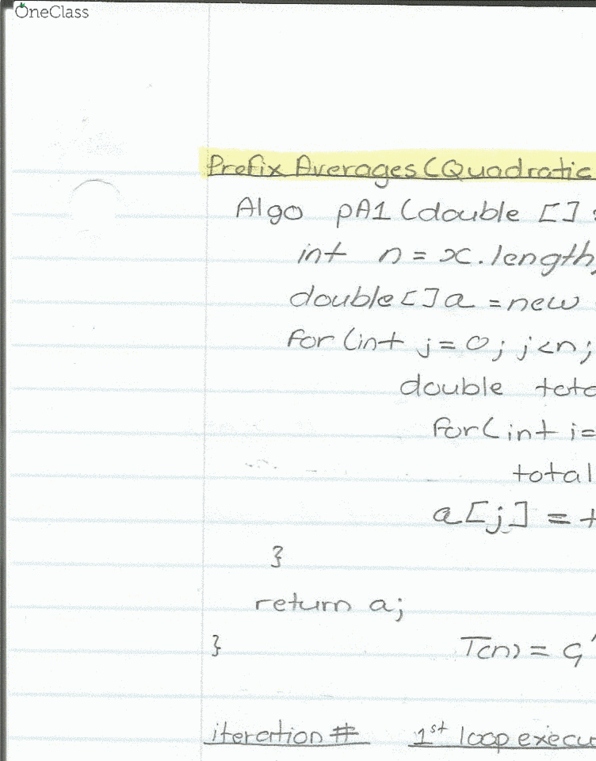 OneClass
Prefix Averages (Quadratic
Algo pA1 (double []
int n = x.length;
double[] a = new
for (int j = 0; j<n;
double tota
for( int i=
total
a[j] = t
}
return a;
}
T(n) =
iteration # 1st loop execu